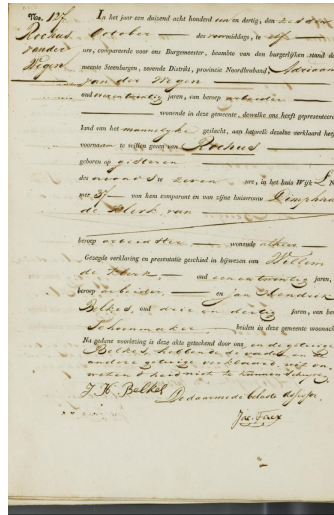 No. 137.
Rochus
vander
Wegen
In het jaar een duizend acht honderd een en dertig, den zesden
October des voormiddags, te elf
ure, compareerde voor ons Burgemeester, beambte van den burgerlijken stand de
meente Steenbergen, zevende Distrikt, provincie Noordbraband, Adriaan
van der Wegen
oud jaren, van beroep arbeider
wonende in deze gemeente, dewelke ons heeft gepresenteerd
kind van het mannelijke geslacht, aan hetwelk dezelve verklaard heeft
voornaam te willen geven van Rochus
geboren op gisteren
des avonds te zeven ure, in het huis Wijk L N
mer 37 van hem comparant en van zijne huisvrouw Dimphna
de Klerk van
beroep arbeidster wonende alhier
Gezegde verklaring en presentatie geschied in bijwezen van Willem
de Klerk, oud een en twintig jaren,
beroep arbeider, en Jan Hendrik
Belkes, oud drie en dertig jaren, van ber
Schoenmaker beiden in deze gemeente woonach
Na gedane voorlezing is deze akte geteekend door ons, en de getuige
Belkes, hebbende de vader en de
andere getuige verklaard uit on
wetendheid niet te kunnen schrijven
J. H. Belkes
De daarmede belaste Assessor